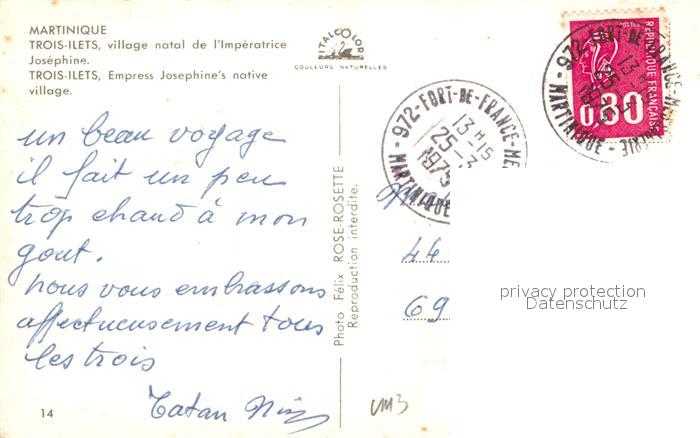 MARTINIQUE
TROIS-ILETS, village natal de l'Impératrice
Joséphine.
TROIS-ILETS, Empress Josephine's native
village.
ITALCOLOR
COULEURS NATURELLES
POSTES
REPUBLIQUE FRANÇAISE
0,80
972-FORT-DE-FRANCE-ME
13 H 15
25-3
1975
MARTINIQUE
un beau voyage
il fait un peu
trop chaud à mon
gout.
nous vous embrassons
affectueusement tous
les trois
Tatan
14
Photo Félix ROSE-ROSETTE
Reproduction interdite.
44
69
privacy protection
Datenschutz